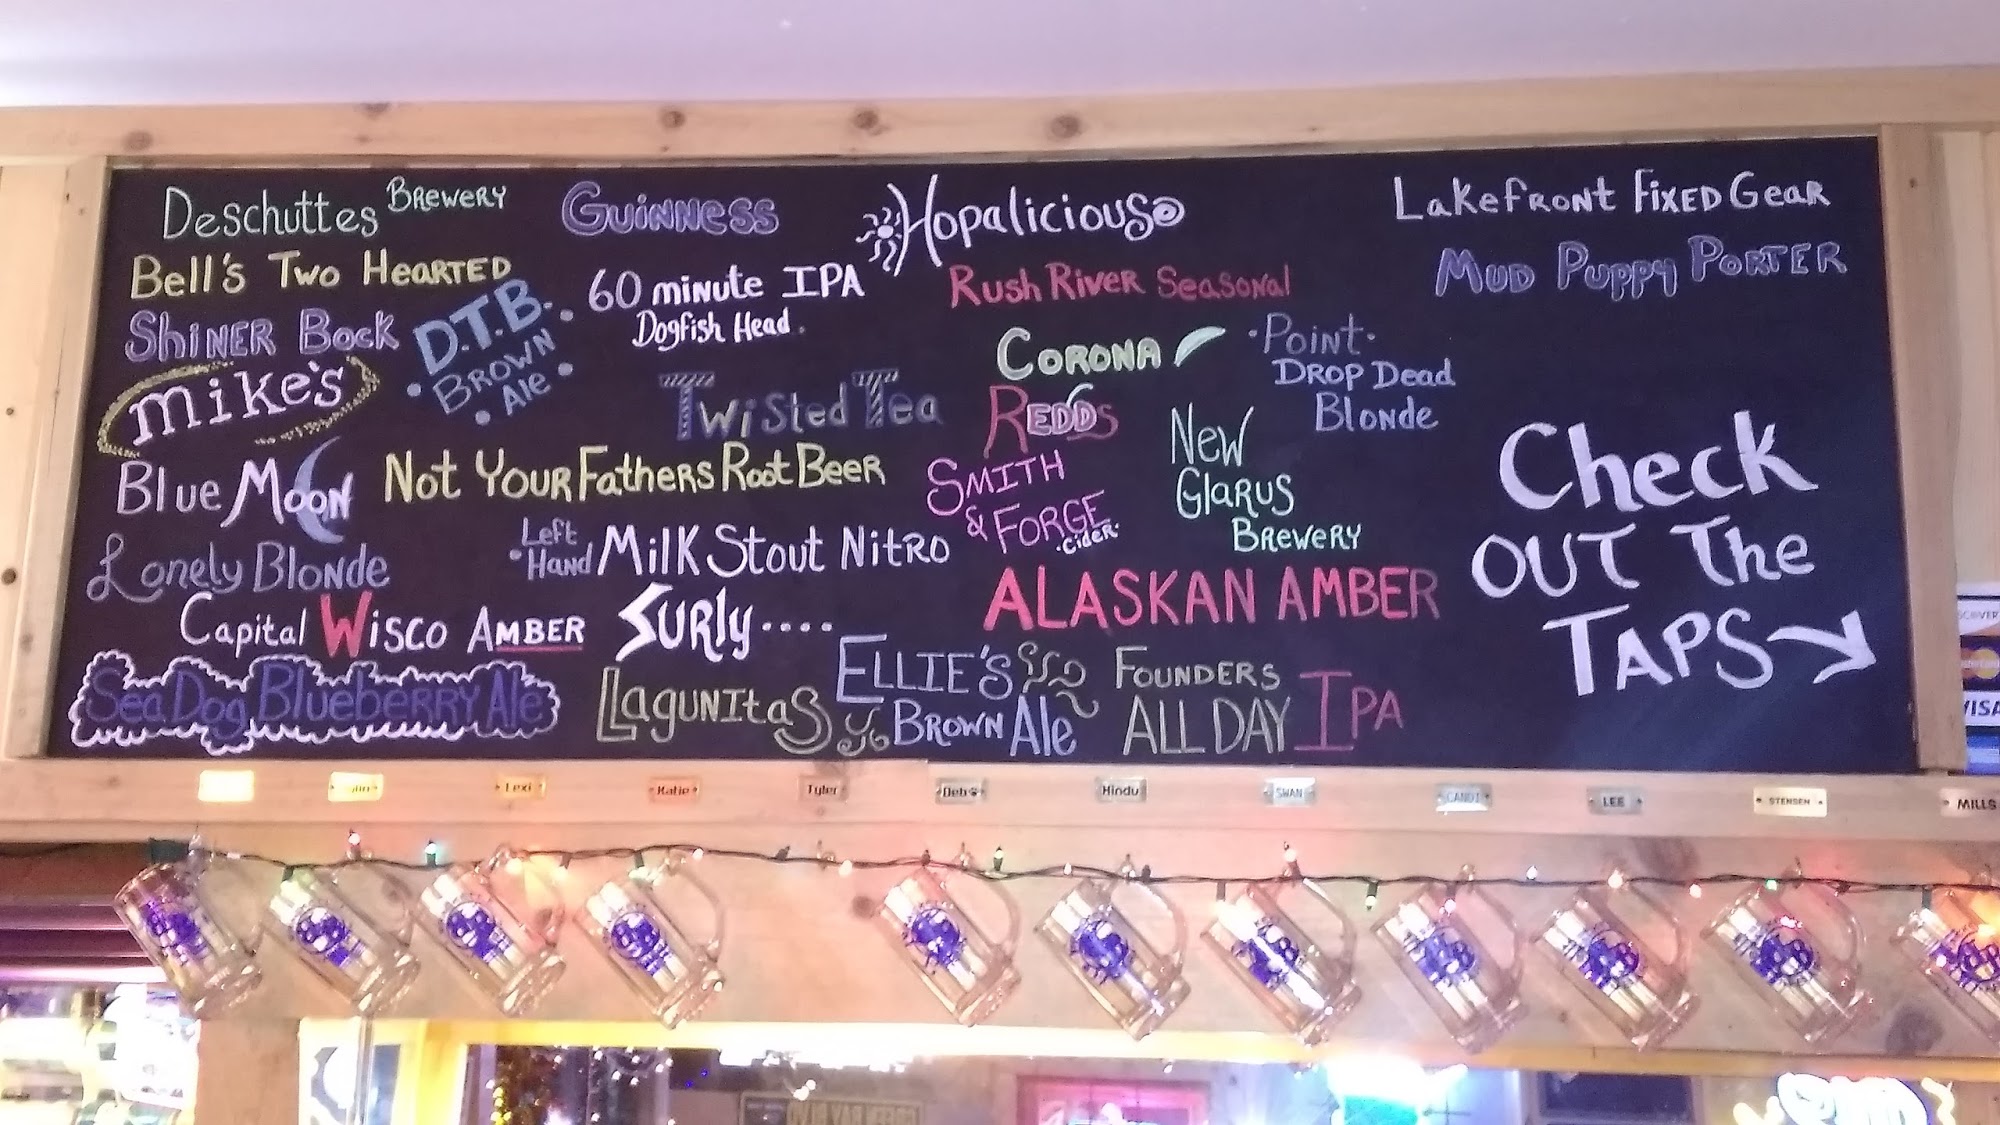 Deschuttes Brewery
Guinness
Hopalicious
Lakefront Fixed Gear
Bell's Two Hearted
D.T.B.
Brown
Ale
60 minute IPA
Dogfish Head.
Rush River Seasonal
Mud Puppy Porter
Shiner Bock
Mike's
Twisted Tea
Corona
Redds
Point
Drop Dead
Blonde
Blue Moon
Not Your Fathers Root Beer
Smith
& Forge
cider
New
Glarus
Brewery
Lonely Blonde
Left
Hand Milk Stout Nitro
Alaskan Amber
Check
out The
Taps
Capital Wisco Amber
Surly....
Sea Dog Blueberry Ale
Lagunitas
Ellie's
Brown Ale
Founders
All Day IPA
Lexi
Katie
Tyler
Deb
Hindu
SWAN
CANDI
LEE
STENSEN
MILLS
VISA